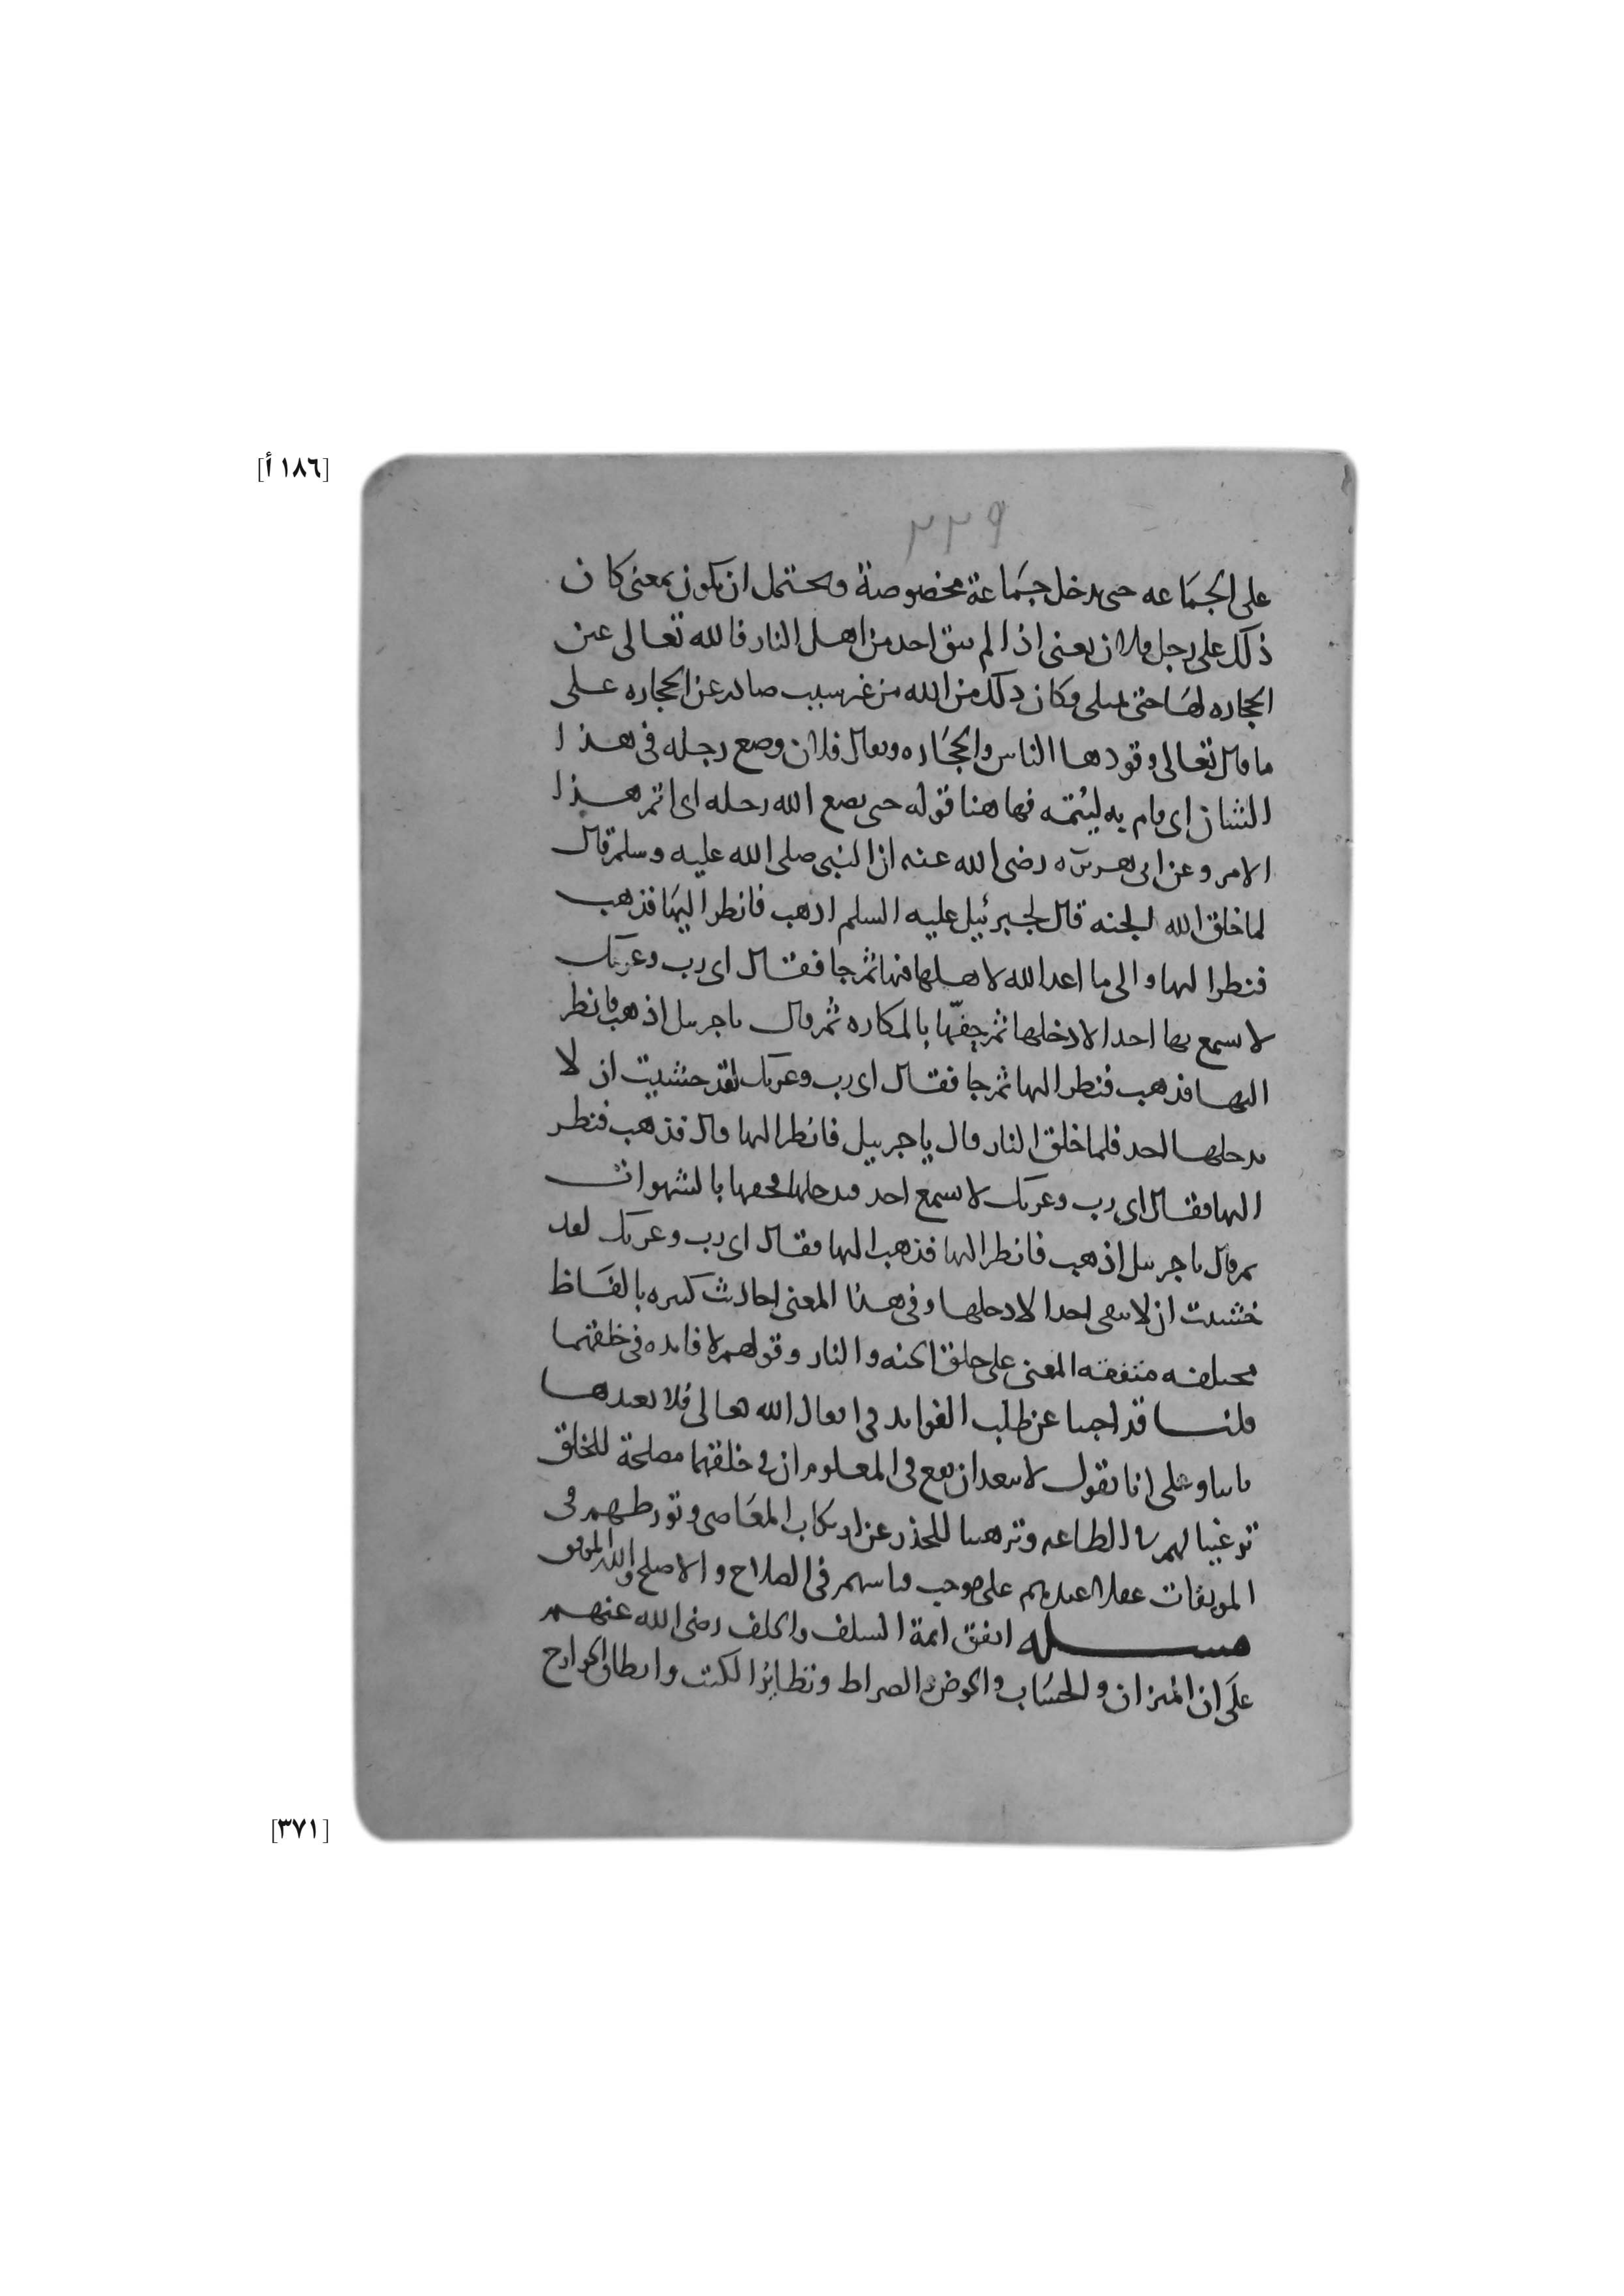 [١٨٦ أ]
٣٣٩
على الجماعه حتى يدخل جماعة مخصوصة ويحتمل ان يكون بمعنى كان
ذلك على رجل فلان يعنى اذا لم يبق احد من اهل النار فالله تعالى عين
الحجاره لها حتى تمتلى وكان ذلك من الله من غير سبب صادر عن الحجاره على
ما قال تعالى وقودها الناس والحجاره ويقال فلان وضع رجله فى هذا
الشان اى قام به ليتمه فهاهنا قوله حتى يضع الله رجله اى اتم هذا
الامر وعن ابى هريرة رضى الله عنه ان النبى صلى الله عليه وسلم قال
لما خلق الله الجنه قال لجبرئيل عليه السلم اذهب فانظر اليها فذهب
فنظر اليها والى ما اعد الله لاهلها فيها ثم جا فقال اى رب وعزتك
لا يسمع بها احد الا دخلها ثم حفها بالمكاره ثم قال يا جبريل اذهب فانظر
اليها فذهب فنظر اليها ثم جا فقال اى رب وعزتك لقد خشيت ان لا
يدخلها احد فلما خلق النار قال يا جبريل فانظر اليها قال فذهب فنظر
اليها فقال اى رب وعزتك لا يسمع احد فيدخلها فحفها بالشهوات
ثم قال يا جبريل اذهب فانظر اليها فذهب اليها فقال اى رب وعزتك لقد
خشيت ان لا يبقى احدا الا دخلها وفى هذا المعنى احاديث كثيره بالفاظ
مختلفه متفقه المعنى على خلق الجنه والنار وقولهم لا فايده فى خلقهما
قلنا قد اجبنا عن طلب الفوايد فى افعال الله تعالى فلا نعيدها
على انا نقول لا يبعد ان يقع فى المعلوم ان فى خلقهما مصلحة للخلق
ترغيبا لهم الطاعه وترهيبا للحذر عن ارتكاب المعاصى وتورطهم فى
الموبقات على موجب قياسهم فى الصلاح والاصلح والله الموفق
مسله اتفق ايمة السلف والخلف رضى الله عنهم
على ان الميزان والحساب والحوض والصراط وتطاير الكتب وانطاق الجوارح
[٣٧١]